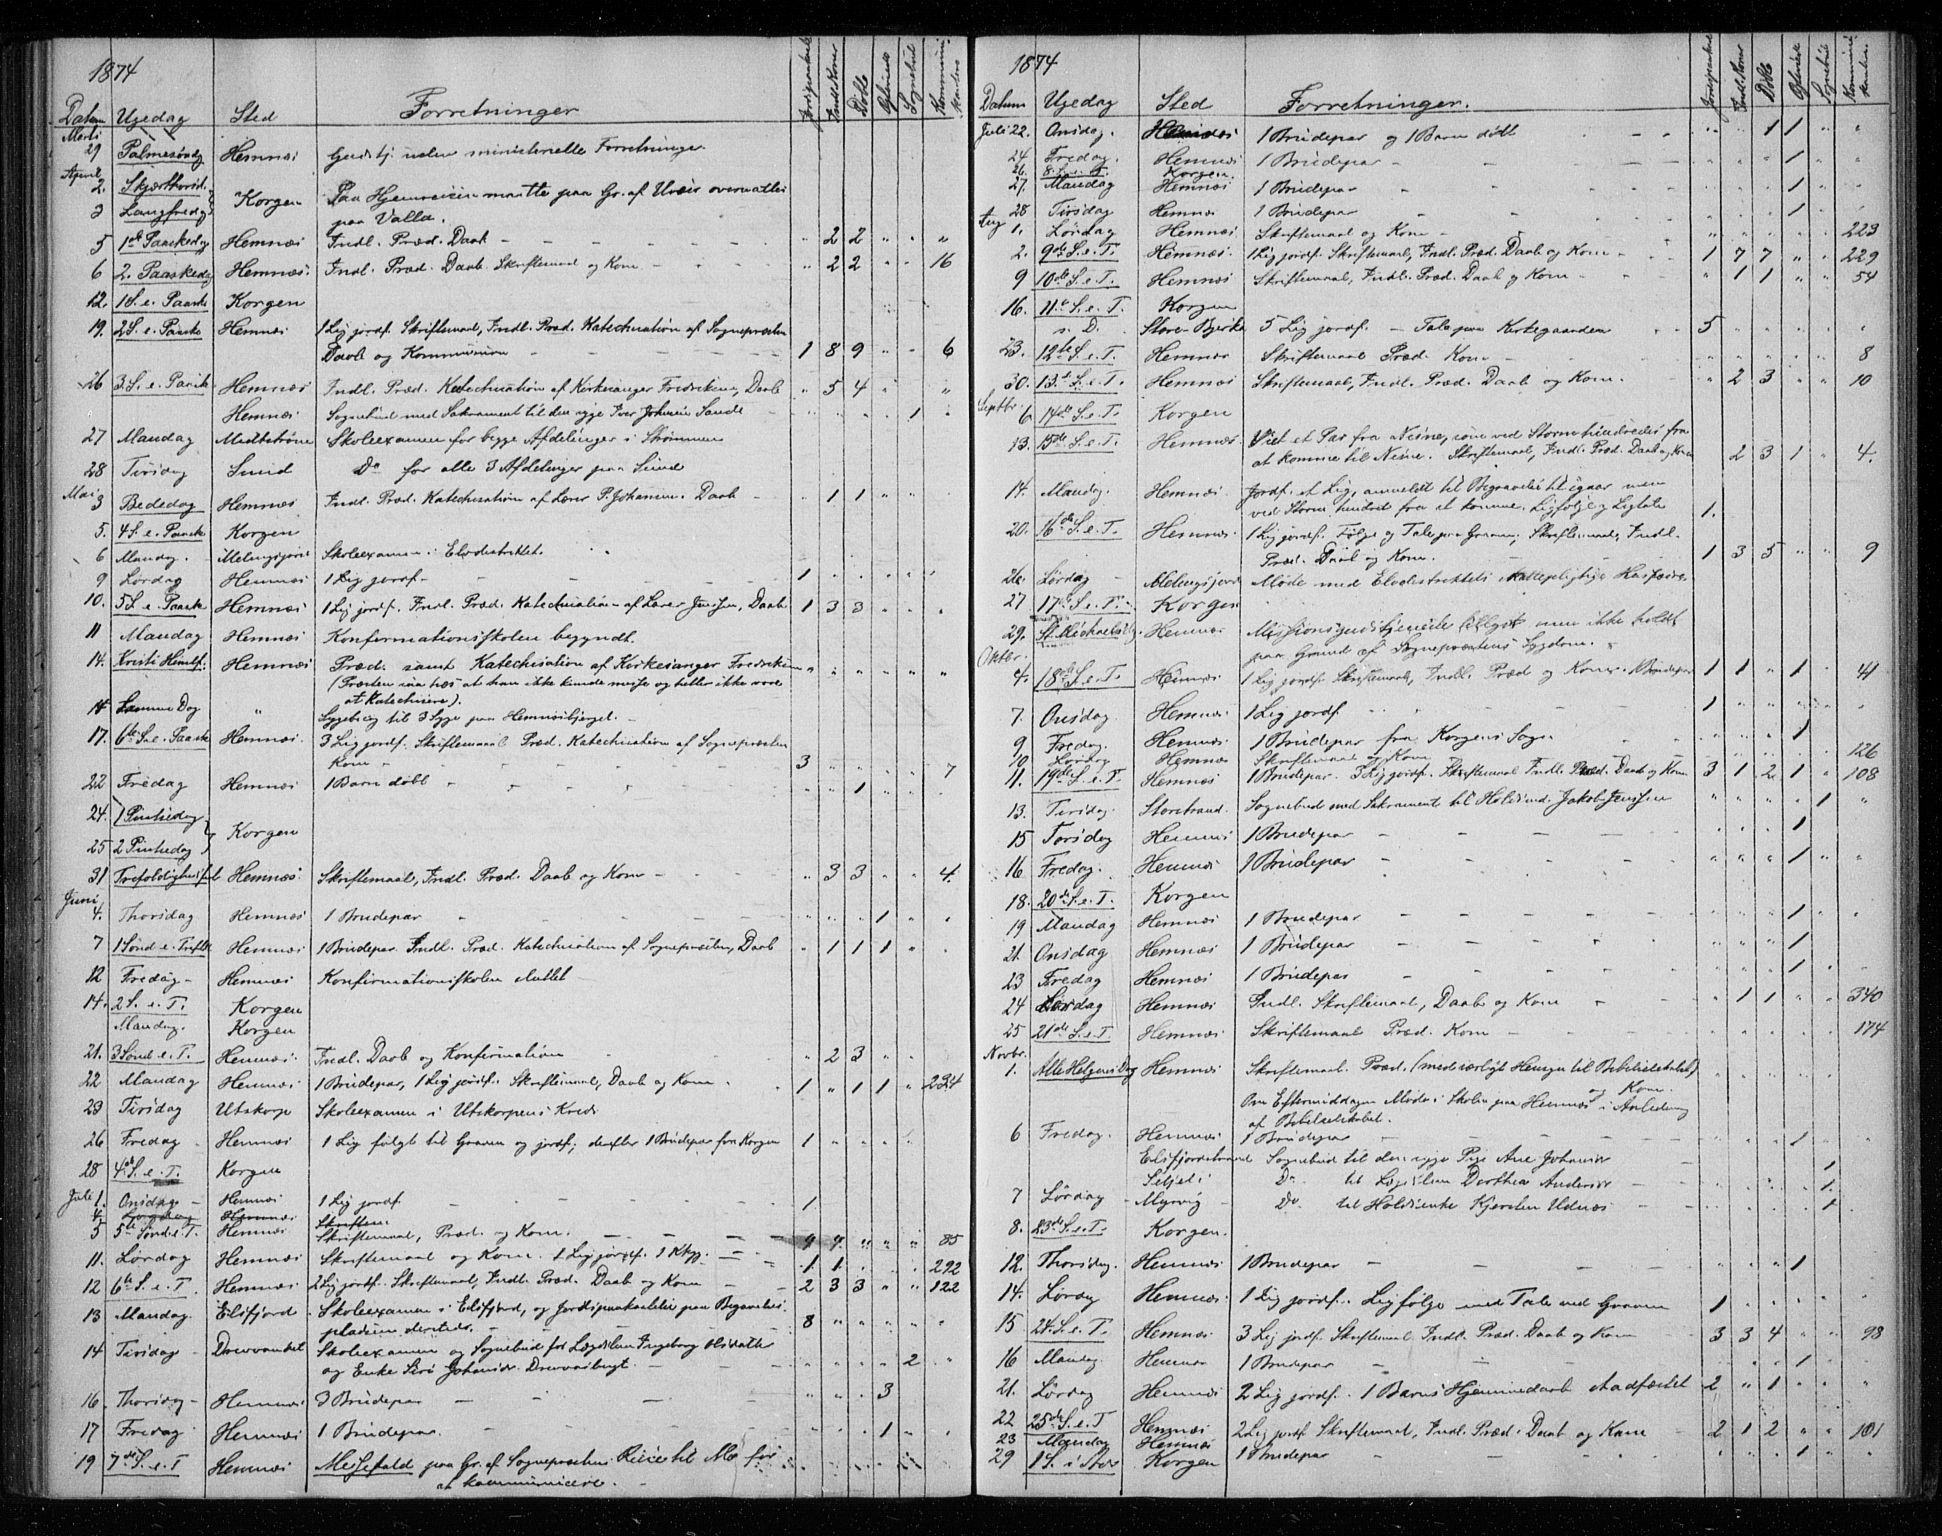 1874
Datum Ugedag Sted Forretninger Jordspaakastelse Indl. Koner Døbte Egteviede Sognebud Kommunikanter
Marti
29 Palmesøndag Hemnæs Gudstj. uden ministerielle Forretninger
April
2. Skjærthorsd.
3 Langfredag Korgen Paa Hjemreisen maatte paa Gr. af Uveir overnattes
paa Valla.
5 1ste Paaskedag Hemnæs Indl. Præd. Daab - - - " 2 2 " " "
6 2. Paaskedag Hemnæs. Indl. Præd. Daab Skriftemaal og Kom - " 2 2 " " 16
12. 1 S. e. Paaske Korgen
19. 2 S. e. Paaske Hemnæs 1 Lig jordf. Skriftemaal, Indl. Præd. Katechisation af Sognepræsten
Daab og Kommunion - - - 1 8 9 " " 6
26 3. S. e. Paaske Hemnæs Indl. Præd. Katechisation af Kirkesanger Fredriksen, Daab " 5 4 " " "
Hemnæs Sognebud med Sakrament til den syge Iver Johnsen Sande 1
27 Mandag Skoleexamen for begge Afdelinger i Strømmen
28 Tirsdag Sund Do for alle 3 Afdelinger paa Sund
Mai
3 Bededag Hemnæs Indl. Præd. Katechisation af Lærer P. Johansen. Daab - " 1 1 " "
5. 4 S. e. Paaske Korgen
6 Mandag. Skoleexamen i Elvedistriktet.
9 Lørdag Hemnæs 1 Lig jordf. - - - 1
10. 5 S. e. Paaske Hemnæs 1 Lig jordf. Indl. Præd. Katechisation af Lærer Jenssen, Daab 1 3 3 " " "
11 Mandag Hemnæs Konfirmationsskolen begyndt.
14. Kristi Himelf. Hemnæs Præd. samt Katechisation af Kirkesanger Fredriksen " " " " " "
(Præsten saa hæs at han ikke kunde messe og heller ikke vove
at Katechisere).
14 Samme Dag " Sygebesøg til 3 Syge paa Hemnæsbjerget.
17. 6te S. e. Paaske Hemnæs. 3 Lig jordf. Skriftemaal Præd. Katechisation af Sognepræsten
Kom - - - 3 7
22 Fredag Hemnæs 1 Barn døbt - - 1
24. 1 Pintsedag
25 2 Pintsedag Korgen
31 Trefoldighedsfest Hemnæs Skriftemaal, Indl. Præd. Daab og Kom - - " 3 3 " " 4.
Juni
4. Thorsdag Hemnæs 1 Brudepar - - 1
7 1 Sønd e. Trefld. Hemnæs 1 Brudepar Indl. Præd. Katechisation af Sognepræsten, Daab " 1 1 1 "
12 Fredag - Hemnæs Konfirmationsskolen sluttet
14. 2 S. e. T. Korgen
Mandag. Korgen
21. 3 Sønd e. T. Hemnæs. Indl. Daab og Konfirmation " 2 3
22 Mandag Hemnæs 1 Brudepar, 1 Lig jordf. Skriftemaal, Daab og Kom 1 " 1 1 " 234
23 Tirsdag Utskorpe Skoleexamen i Utskorpens Kreds
26 Fredag Hemnæs 1 Lig fulgt til Graven og jordf., derefter 1 Brudepar fra Korgen 1
28 4de S. e. T. Korgen
Juli 1. Onsdag - Hemnæs 1 Lig jordf. - 1
4 Lørdag Hemnæs Skriftem.
5 5te Sønd. e. T. Hemnæs Skriftemaal, Præd. og Kom. - " " 85
11. Lørdag Hemnæs Skriftemaal og Kom. 1 Lig jordf. - 1 1 292
12 6te S. e. T. Hemnæs 2 Lig jordf. Skriftemaal, Indl. Præd. Daab og Kom - 2 3 3 " " 122
13 Mandag. Elsfjord Skoleexamen i Elsfjord, og Jordspaakastelse paa Begravelses-
pladsen dersteds. 8
14 Tirsdag - Skoleexamen og Sognebud for Lægdslem Ingeborg Olsdatter
og Enke Siri 2
16 Thorsdag - Hemnæs 3 Brudepar - - 3
17 Fredag Hemnæs 1 Brudepar. - 1
19 7de S. e. T Hemnæs Messefald paa Gr. af Sognepræstens Reise til Mo for
at kommunicere.
1874
Datum Ugedag Sted Forretninger. Jordspaakastelse Indl. Koner Døbte Egteviede Sognebud Kommunikanter
Juli 22. Onsdag. Hemnæs 1 Brudepar og 1 Barn døbt - - " " 1 1 " "
24 Fredag. Hemnæs 1 Brudepar - 1
26. 8 S. e. T. Korgen.
27. Mandag Hemnæs 1 Brudepar - 1
28 Tirsdag Hemnæs 1 Brudepar - 1
Aug 1. Lørdag Hemnæs Skriftemaal og Kom - 223
2. 9de S. e. T. Hemnæs. 1 Lig jordf. Skriftemaal, Indl. Præd. Daab og Kom - 1 7 7 " " 229
9 10de S. e. T. Hemnæs Skriftemaal, Indl. Præd. Daab og Kom - " 1 1 " " 54
16. 11te S. e. T. Korgen
s. D. Store Bjerka 5 Lig jordf. - Tale paa Kirkegaarden 5
23. 12te S. e. T. Hemnæs Skriftemaal Præd. Kom - 8
30. 13de S. e. T. Hemnæs Skriftemaal, Indl. Præd. Daab og Kom. " 2 3 " " 10
Septbr.
6 14de S. e. T. Korgen
13. 15de S. e. T. Hemnæs Viet et Par fra Nesne, som ved Storm hindredes fra
at komme til Nesne. Skriftemaal, Indl. Præd. Daab og Kom 2 3 1 " 4.
14. Mandag. Hemnæs. Jordf. et Lig, anmeldt til Begravelse til igaar men
ved Storm hindret fra at komme. Ligfølge og Ligtale 1.
20. 16de S. e. T. Hemnæs 1 Lig jordf. Følge og Tale paa Graven, Skriftemaal, Indl.
Præd. Daab og Kom. 1 3 5 " " 9
26. Lørdag - Møde med Elvedistriktets skattepligtige Huusfædre.
27 17de S. e. T. - Korgen
29. St. Michaelsdg. Hemnæs Missionsgudstjeneste men ikke holdt
paa Grund af Sognepræstens Sygdom.
Oktbr.
4. 18de S. e. T. Hemnæs 1 Lig jordf. Skriftemaal, Indl. Præd og Kom. 1 Brudepar 1 1 " 1 41
7. Onsdag Hemnæs 1 Lig jordf 1
9 Fredag. Hemnæs 1 Brudepar fra Korgens Sogn 1
10 Lørdag Hemnæs Skriftemaal og Kom 126
11. 19de S. e. T. Hemnæs 1 Brudepar. 3 Lig jordf. Skriftemaal Indl. Præd. Daab og Kom 3 1 2 1 " 108
13. Tirsdag. Storstrand. Sognebud med Sakrament til Huusmd. Jakob Jenssen 1
15 Torsdag Hemnæs 1 Brudepar - 1
16 Fredag. Hemnæs 1 Brudepar - 1
18. 20de S. e. T. Korgen
19 Mandag Hemnæs 1 Brudepar - 1
21. Onsdag Hemnæs 1 Brudepar - 1
23 Fredag Hemnæs 1 Brudepar - 1
24 Lørdag Hemnæs Indl. Skriftemaal, Daab og Kom - " 1 1 " " 340
25 21de S. e. T. Hemnæs Skriftemaal Præd. Kom - 174
Novbr.
1. Alle Helgens Dag Hemnæs Skriftemaal. Præd. (med særligt Hensyn til Bibelselskabet)
og Kom.
Om Eftermiddagen Møde i Skolen paa Hemnæs i Anledning
af Bibelselskabet.
6 Fredag. Hemnæs 1 Brudepar - 1
Elsfjordstrand Sognebud til den syge Pige Ane Johansdr 1
Do til Dorthea Andersdr 1
7 Lørdag - Myrvig Do til Kjersten 1
8. 23de S. e. T. Korgen.
12. Thorsdag. Hemnæs 1 Brudepar - 1
14. Lørdg Hemnæs. 1 Lig jordf. Ligfølge med Tale ved Graven 1
15 24. S. e. T. Hemnæs 3 Lig jordf. Skriftemaal, Indl. Præd. Daab og Kom - 3 3 4 " " 98
16 Mandag. Hemnæs 1 Brudepar - 1
21. Lørdag Hemnæs 2 Lig jordf. 1 Barns Hjemmedaab stadfæstet 2 " 1
22 25de S. e. T Hemnæs 2 Lig jordf Skriftemaal, Indl. Præd. Daab og Kom 2 1 2 " " 101
23 Mandag Hemnæs 1 Brudepar 1
29 1 S. i Adv Korgen